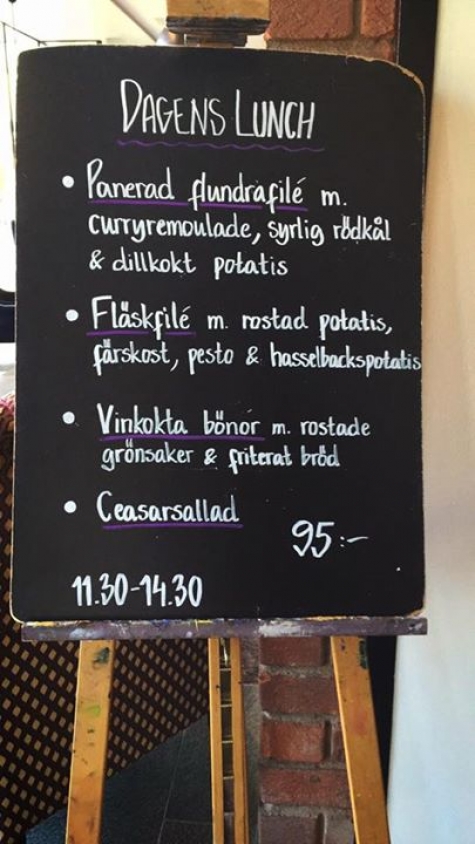 DAGENS LUNCH
• Panerad flundrafilé m.
curryremoulade, syrlig rödkål
& dillkokt potatis
• Fläskfilé m. rostad potatis,
färskost, pesto & hasselbackspotatis
• Vinkokta bönor m. rostade
grönsaker & friterat bröd
• Ceasarsallad
95:-
11.30-14.30